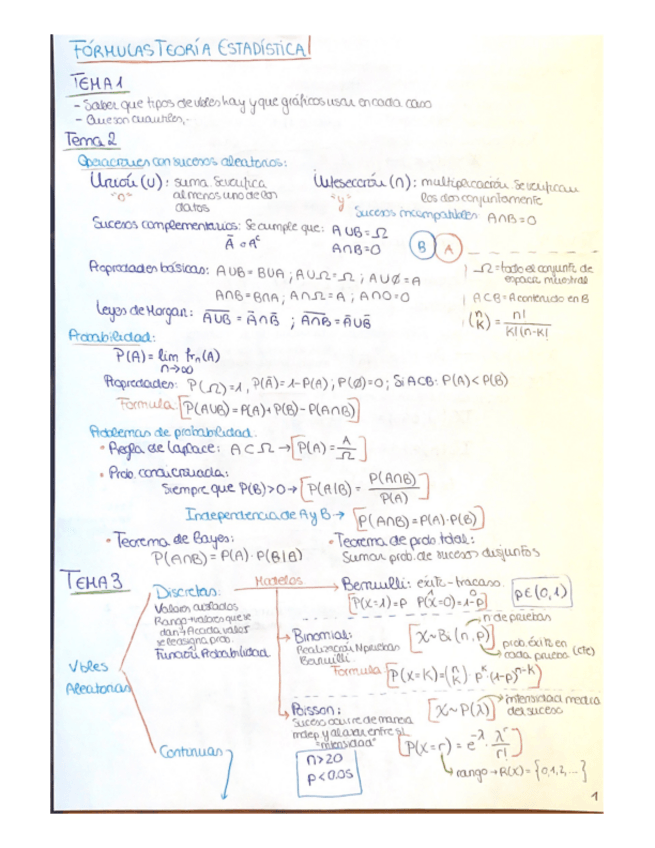 FÓRMULAS TEORÍA ESTADÍSTICA
TEMA 1
- Saber que tipos de vbles hay y que gráficos usar en cada caso
- Que son cuartiles,..
Tema 2
Operaciones con sucesos aleatorios:
Unión (∪): suma. Se verifica al menos uno de los datos
"o"
Intersección (∩): multiplicación. Se verifican los dos conjuntamente
"y"
Sucesos incompatibles A∩B=∅
Sucesos complementarios: Se cumple que: A∪B=Ω
Ā o Aᶜ
A∩B=∅
B A
Propiedades básicas: A∪B=B∪A ; A∪Ω=Ω ; A∪∅=A
A∩B=B∩A ; A∩Ω=A ; A∩∅=∅
Ω=todo el conjunto de espacio muestral
A⊂B=A contenido en B
(n K) = n! / K!(n-K!
Leyes de Morgan: \overline{A∪B} = Ā∩B̄ ; \overline{A∩B} = Ā∪B̄
Probabilidad:
P(A) = lim frn(A)
n→∞
Propiedades: P(Ω)=1, P(Ā)=1-P(A) ; P(∅)=0 ; Si A⊂B: P(A)<P(B)
Formula: [P(A∪B)=P(A)+P(B)-P(A∩B)]
Problemas de probabilidad:
• Regla de Laplace: A⊂Ω → [P(A)= A/Ω]
• Prob. condicionada:
Siempre que P(B)>0 → [P(A|B) = P(A∩B)/P(A)]
Independencia de A y B → [P(A∩B)=P(A)·P(B)]
• Teorema de Bayes:
P(A∩B)=P(A)·P(B|B)
• Teorema de prob total:
Sumar prob. de sucesos disjuntos
TEMA 3
Vbles Aleatorias
Discretas:
Valores aislados
Rango→valores que se
dan→A cada valor
se le asigna prob.
Función Probabilidad
Modelos
Bernuilli: exito-fracaso
[P(X=1)=p P(X=0)=1-p]
p∈(0,1)
Binomial:
Realización N pruebas
Bernuilli.
[X~Bi(n,p)]
n de pruebas
prob. éxito en
cada prueba (cte)
Formula [P(X=K)=(n K)·pᴷ·(1-p)ⁿ⁻ᴷ]
Poisson:
Suceso ocurre de manera
indep y al azar entre sí.
"intensidad"
[X~P(λ)]
intensidad media
del suceso
[P(X=r) = e^-λ · λ^r / r!]
rango → R(X) = {0,1,2,...}
n>20
p<0.05
Continuas
1